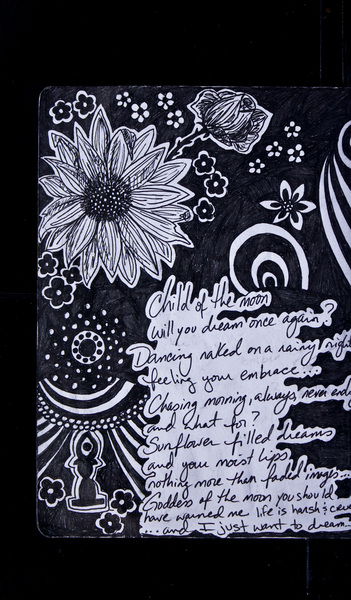 Child of the moon
will you dream once again?
Dancing naked on a rainy night
feeling your embrace...
Chasing morning, always, never
and what for?
Sunflower filled dreams
and your moist lips
nothing more than faded images...
Goddess of the moon you should
have warned me life is harsh &
... and I just want to dream...